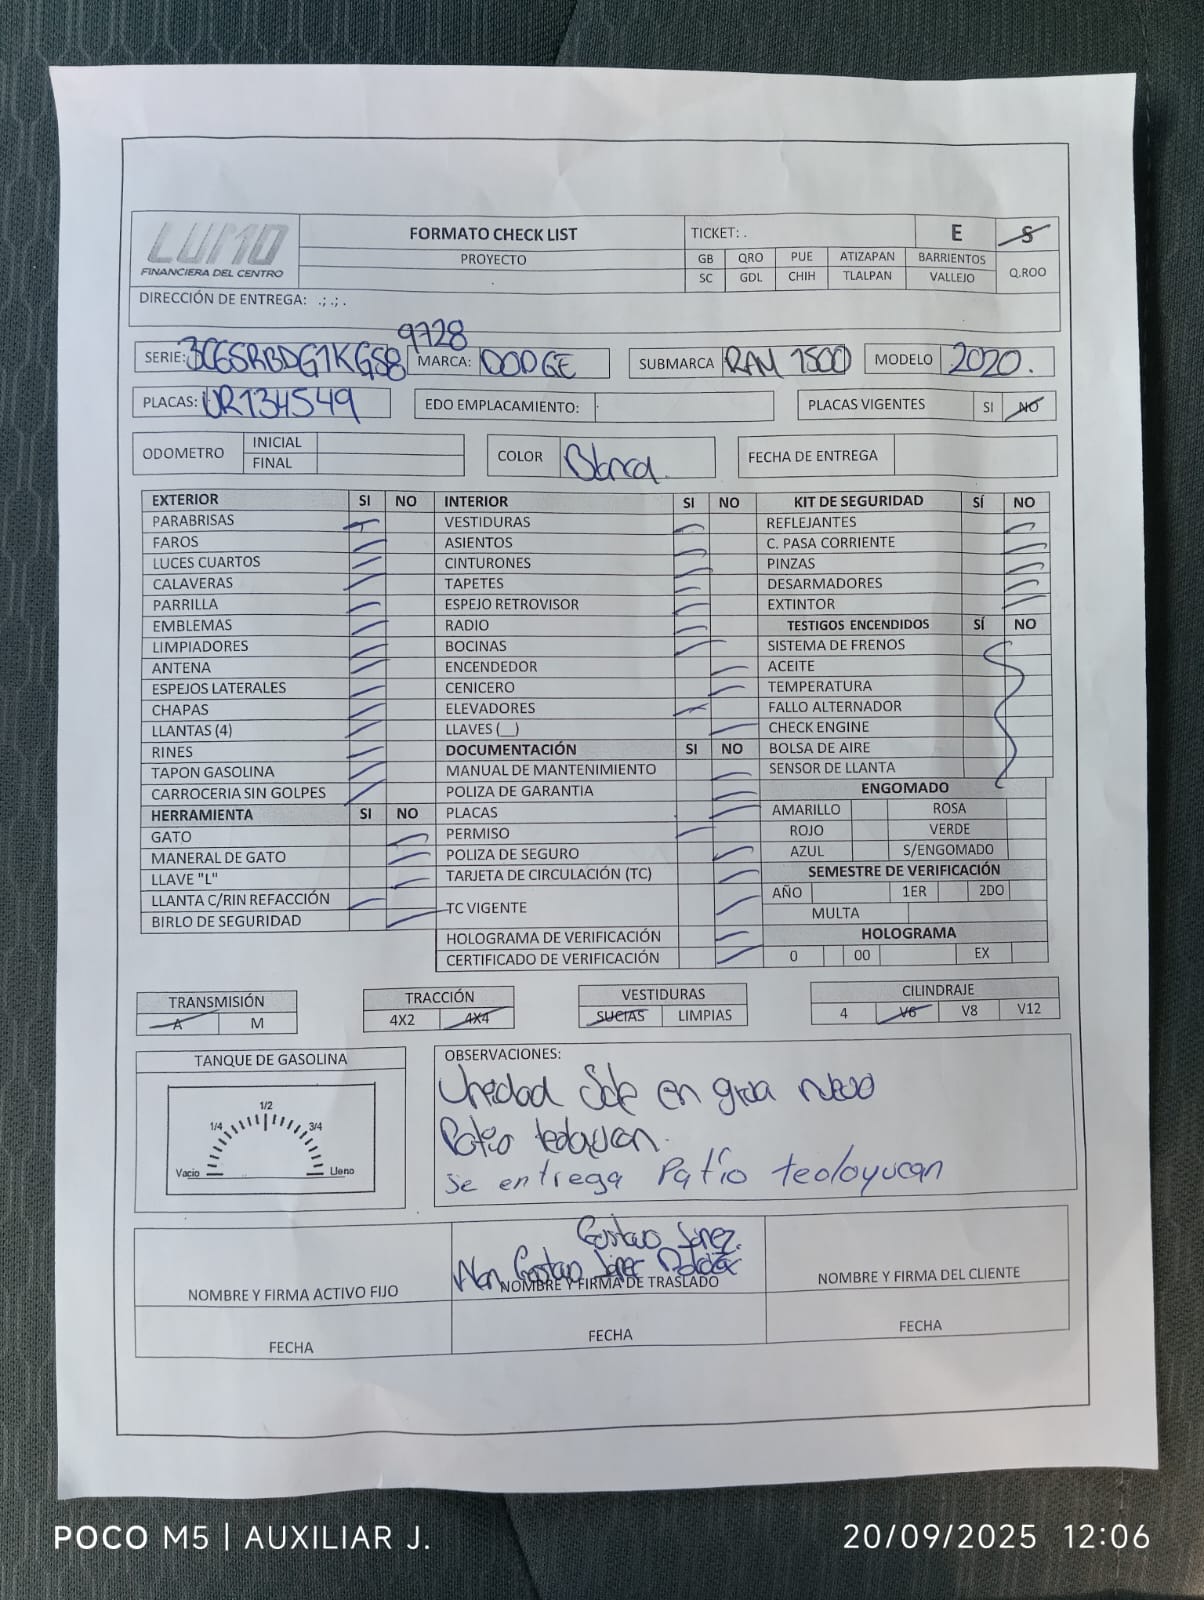 LUMO FORMATO CHECK LIST TICKET: . E S
FINANCIERA DEL CENTRO PROYECTO GB QRO PUE ATIZAPAN BARRIENTOS Q.ROO
SC GDL CHIH TLALPAN VALLEJO
DIRECCIÓN DE ENTREGA: .; .; .
9728
SERIE: 3C6SRBDG1KGS8 MARCA: DODGE SUBMARCA RAM 1500 MODELO 2020.
PLACAS: UR134549 EDO EMPLACAMIENTO: PLACAS VIGENTES SI NO
ODOMETRO INICIAL COLOR Blanca. FECHA DE ENTREGA
FINAL
EXTERIOR SI NO INTERIOR SI NO KIT DE SEGURIDAD SÍ NO
PARABRISAS VESTIDURAS REFLEJANTES
FAROS ASIENTOS C. PASA CORRIENTE
LUCES CUARTOS CINTURONES PINZAS
CALAVERAS TAPETES DESARMADORES
PARRILLA ESPEJO RETROVISOR EXTINTOR
EMBLEMAS RADIO TESTIGOS ENCENDIDOS SÍ NO
LIMPIADORES BOCINAS SISTEMA DE FRENOS
ANTENA ENCENDEDOR ACEITE
ESPEJOS LATERALES CENICERO TEMPERATURA
CHAPAS ELEVADORES FALLO ALTERNADOR
LLANTAS (4) LLAVES (__) CHECK ENGINE
RINES DOCUMENTACIÓN SI NO BOLSA DE AIRE
TAPON GASOLINA MANUAL DE MANTENIMIENTO SENSOR DE LLANTA
CARROCERIA SIN GOLPES POLIZA DE GARANTIA ENGOMADO
HERRAMIENTA SI NO PLACAS AMARILLO ROSA
GATO PERMISO ROJO VERDE
MANERAL DE GATO POLIZA DE SEGURO AZUL S/ENGOMADO
LLAVE "L" TARJETA DE CIRCULACIÓN (TC) SEMESTRE DE VERIFICACIÓN
LLANTA C/RIN REFACCIÓN TC VIGENTE AÑO 1ER 2DO
BIRLO DE SEGURIDAD MULTA
HOLOGRAMA DE VERIFICACIÓN HOLOGRAMA
CERTIFICADO DE VERIFICACIÓN 0 00 EX
TRANSMISIÓN TRACCIÓN VESTIDURAS CILINDRAJE
A M 4X2 4X4 SUCIAS LIMPIAS 4 V6 V8 V12
TANQUE DE GASOLINA OBSERVACIONES:
1/4 1/2 3/4
Vacio Lleno
Unidad Sale en grua
Patio
se entrega Patío teoloyucan
Gustavo
Gustavo
NOMBRE Y FIRMA ACTIVO FIJO NOMBRE Y FIRMA DE TRASLADO NOMBRE Y FIRMA DEL CLIENTE
FECHA FECHA FECHA
POCO M5 | AUXILIAR J. 20/09/2025 12:06